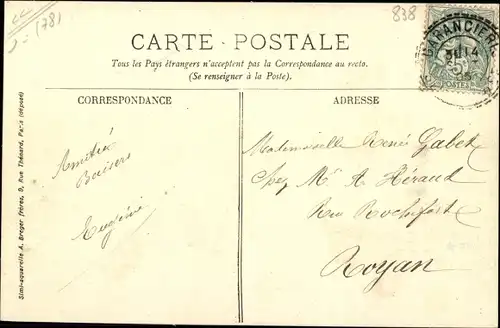 (78)
838
CARTE POSTALE
Tous les Pays étrangers n'acceptent pas la Correspondance au recto.
(Se renseigner à la Poste).
GARANCIÈRES
POSTES
CORRESPONDANCE
ADRESSE
Amitié
Baisers
Eugénie
Mademoiselle Renée Gabet
Chez Mr A Héraud
Rue Rochefort
Royan
Simi-aquarelle A. Breger frères, 9, Rue Thénard, Paris (déposé)